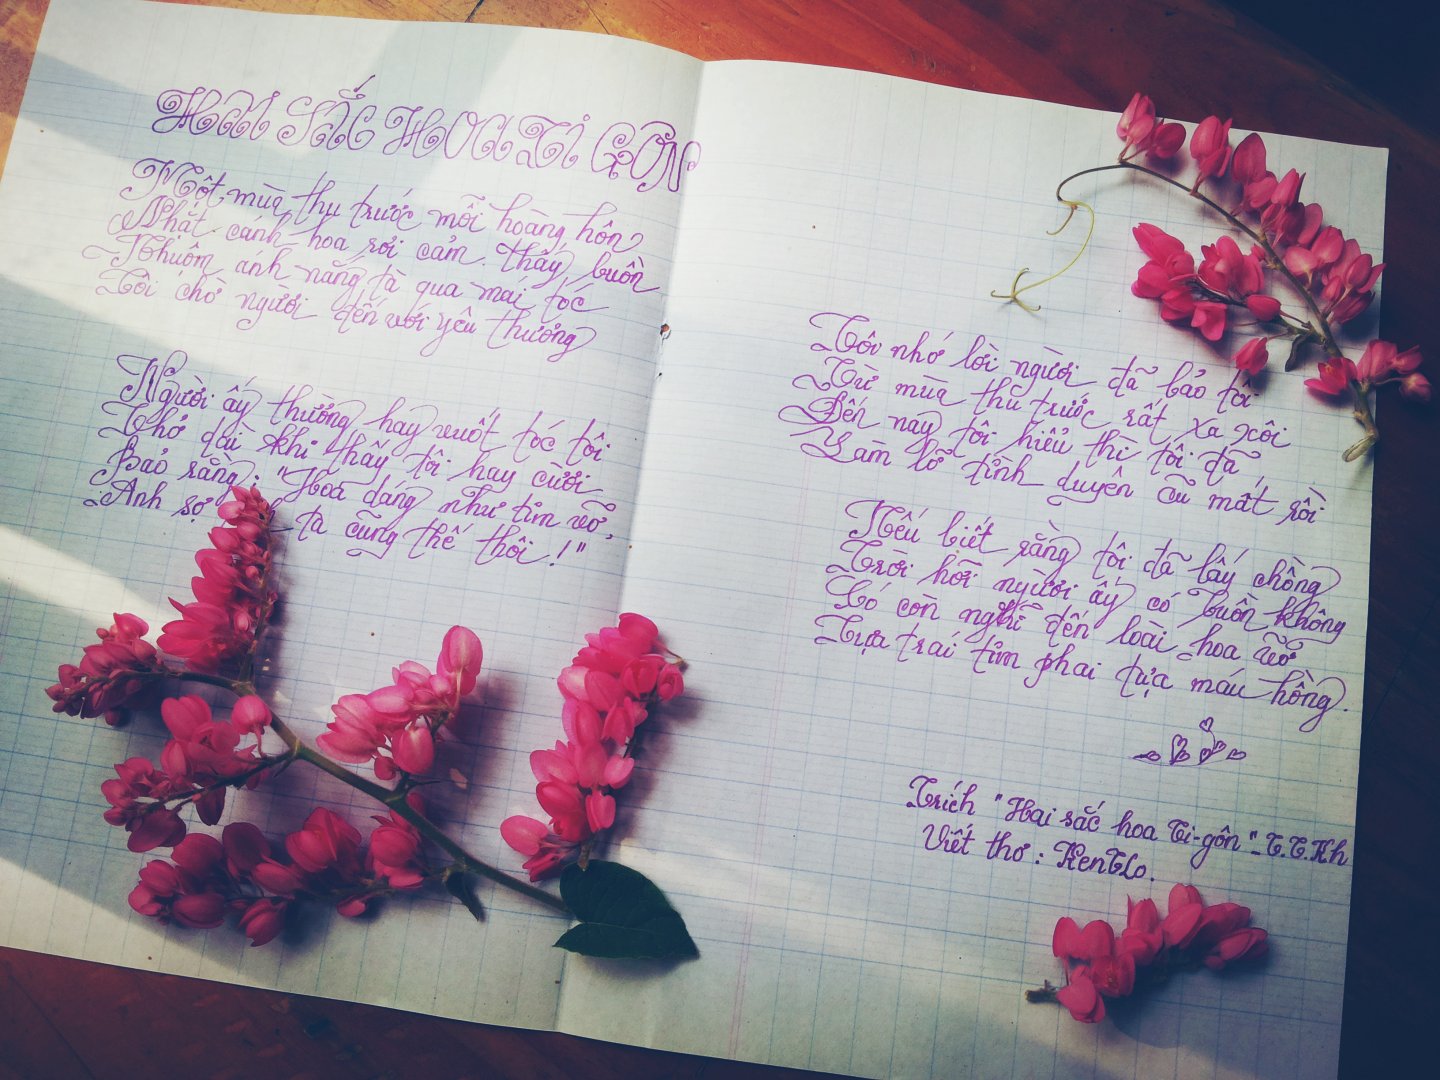 HAI SẮC HOA TI GÔN
Một mùa thu trước mỗi hoàng hôn
Nhặt cánh hoa rơi cảm thấy buồn
Nhuộm ánh nắng tà qua mái tóc
Tôi chờ người đến với yêu thương
Người ấy thường hay vuốt tóc tôi
Thở dài khi thấy tôi hay cười
Bảo rằng: "Hoa dáng như tim vỡ,
Anh sợ ta cũng thế thôi!"
Tôi nhớ lời người đã bảo tôi
Từ mùa thu trước rất xa xôi
Đến nay tôi hiểu thì tôi đã
Làm lỡ tình duyên cũ mất rồi
Nếu biết rằng tôi đã lấy chồng
Trời hỡi người ấy có buồn không
Có còn nghĩ đến loài hoa vỡ
Tựa trái tim phai tựa máu hồng.
Trích "Hai sắc hoa Ti-gôn" - T.T.Kh
Viết thơ: KenTLo.